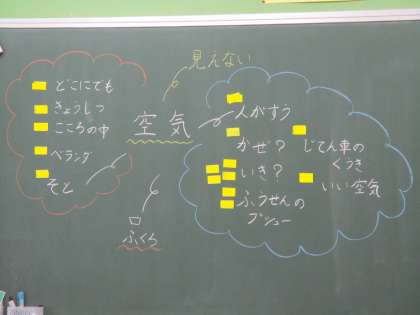 見えない
空気
どこにでも
きょうしつ
こころの中
ベランダ
そと
人がすう
かぜ?
いき?
ふうせんの
プシュー
じてん車の
くうき
いい空気
ふくろ